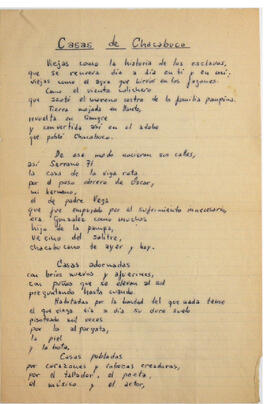 Casas de Chacabuco
Viejas como la historia de los esclavos,
que se renueva día a día en ti y en mí,
viejas como el agua que hierve en los fogones.
Como el viento
que azotó el moreno rostro de la familia pampina.
Tierra mojada en llanto,
revuelta en sangre
y convertida en el adobe
que pobló Chacabuco.
De ese modo nacieron sus calles,
así Serrano 71
la casa de la viga rota
por el paso obrero de Oscar,
mi hermano,
el de padre Vega
que fue empujado por el sufrimiento innecesario,
era González como muchos
hijo de la pampa,
vecino del salitre,
chacabucano de ayer y hoy.
Casas adornadas
con bríos nuevos y
con puños que se elevan al sol
preguntando hasta cuando.
Habitadas por la bondad del que nada teme
el que niega día a día su duro suelo
pisoteado mil veces
por la alpargata,
la piel
y la bota.
Casas pobladas
por corazones y cabezas creadoras,
por el tallador, el poeta,
el músico y el actor,